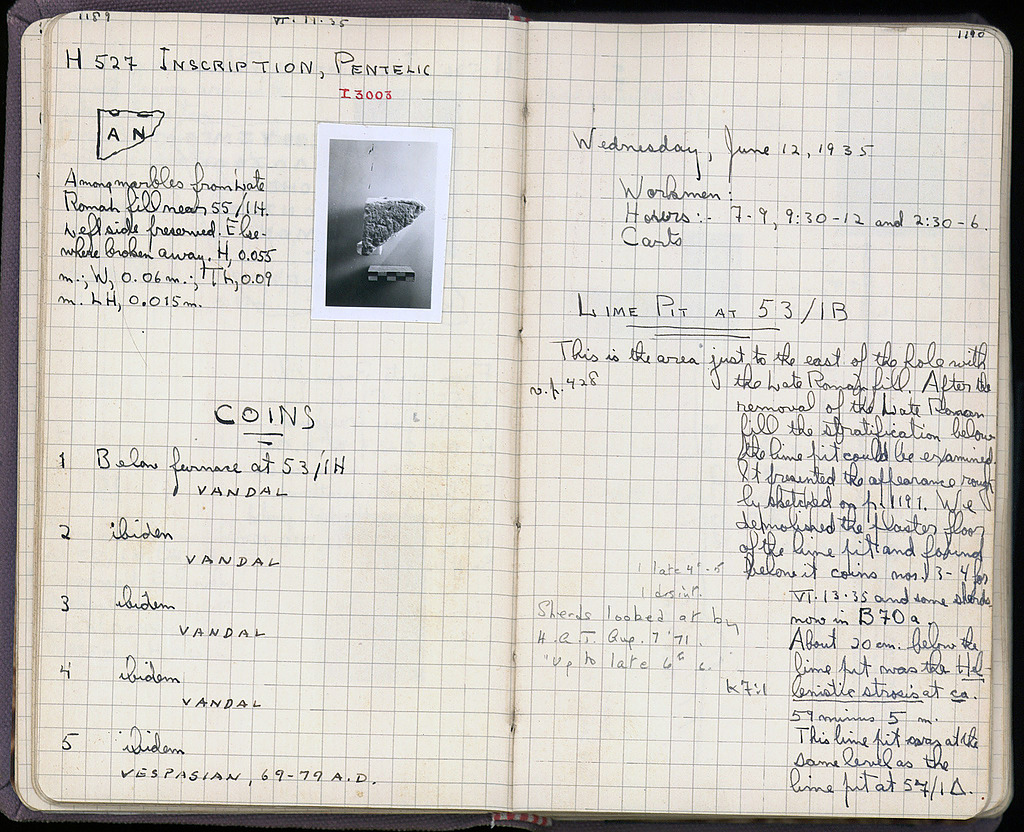 1189
VI·11·35
H 527 INSCRIPTION, PENTELIC
I 3003
A N
Among marbles from Late
Roman fill near 55/1H.
Left side preserved. Else-
where broken away. H, 0.055
m.; W, 0.06 m.; Th, 0.09
m. LH, 0.015 m.
COINS
1 Below furnace at 53/1H
VANDAL
2 ibidem
VANDAL
3 ibidem
VANDAL
4 ibidem
VANDAL
5 ibidem
VESPASIAN, 69-79 A.D.
1190
Wednesday, June 12, 1935
Workmen:
Hours:- 7-9, 9:30-12 and 2:30-6.
Carts
LIME PIT AT 53/1B
This is the area just to the east of the hole with
v.p. 428
the Late Roman fill. After the
removal of the Late Roman
fill the stratification below
the lime pit could be examined.
It presented the appearance rough
ly sketched on p. 1191. We
demolished the plaster floor
of the lime pit and found
below it coins nos. 3-4 for
1 late 4-5
1 disint.
VI·13·35 and some sherds
now in B70a.
Sherds looked at by
H.A.T. Aug. 7 '71.
"up to late 6th c.
About 20 cm. below the
lime pit was the Hel-
lenistic strosis at ca.
K7:1
59 minus 5 m.
This lime pit was at the
same level as the
lime pit at 57/1Δ.